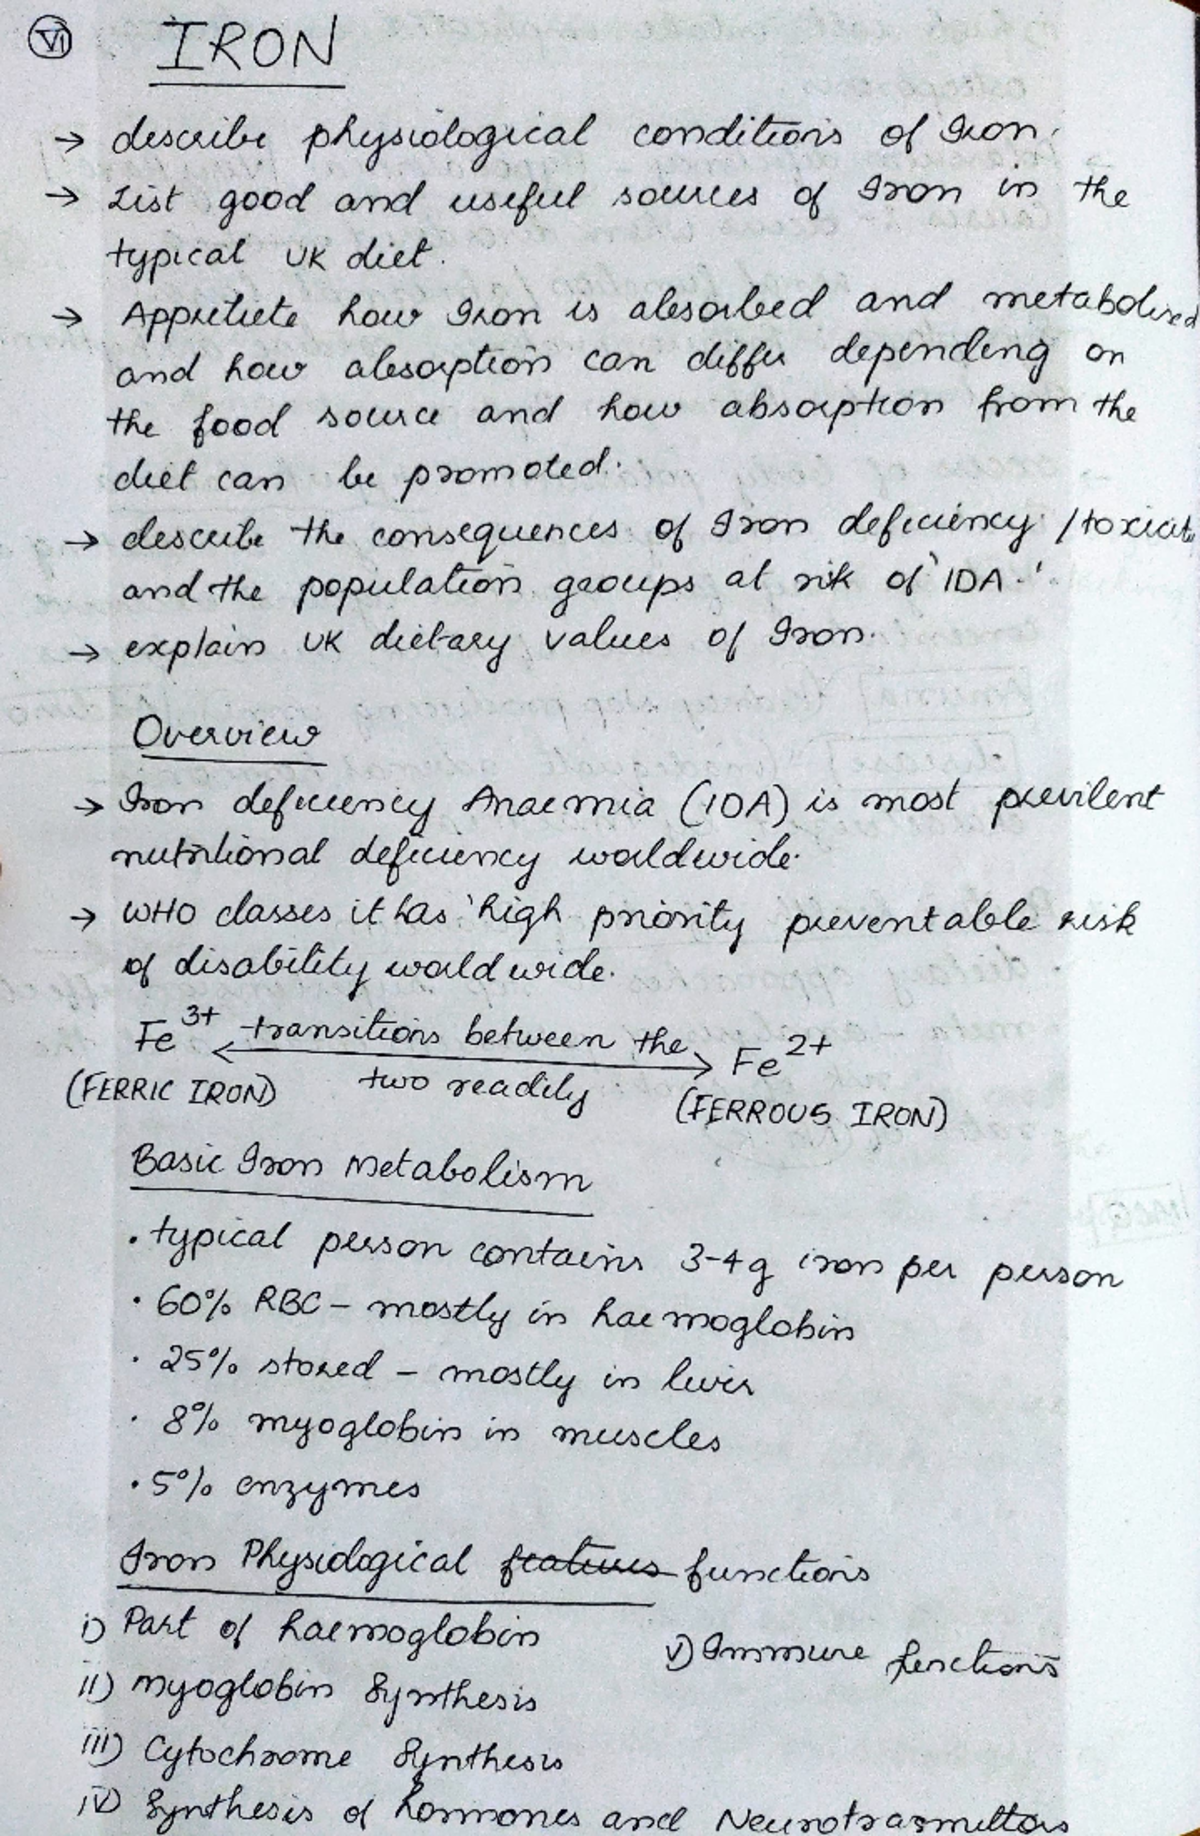 VI IRON
→ describe physiological conditions of Iron.
→ List good and useful sources of Iron in the
typical UK diet.
→ Appretiete how Iron is absorbed and metabolised
and how absorption can differ depending on
the food source and how absorption from the
diet can be promoted.
→ describe the consequences of Iron deficiency /toxicity
and the population groups at risk of 'IDA.'
→ explain UK dietary values of Iron.
Overview
→ Iron deficiency Anaemia (IDA) is most previlent
nutritional deficiency worldwide.
→ WHO classes it has 'high priority preventable risk
of disability world wide.
Fe3+ ⟷ transitions between the two readily Fe2+
(FERRIC IRON) (FERROUS IRON)
Basic Iron Metabolism
• typical person contains 3-4g iron per person
• 60% RBC - mostly in haemoglobin
• 25% stored - mostly in liver
• 8% myoglobin in muscles
• 5% enzymes
Iron Physiological features functions
i) Part of haemoglobin
ii) myoglobin synthesis
iii) Cytochrome synthesis
iv) synthesis of hormones and Neurotrasmittors
v) Immune functions